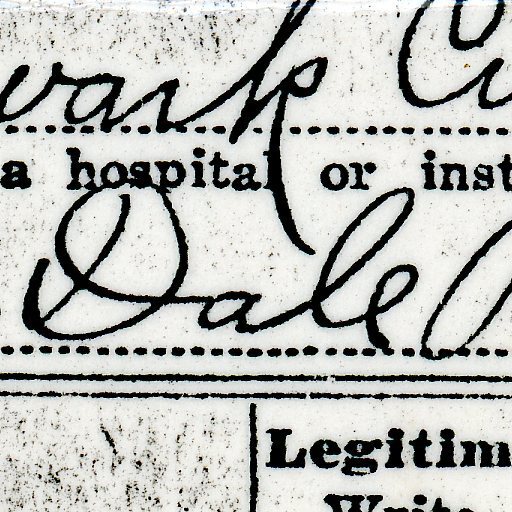 wark Ci
a hospital or inst
Dale
Legitim
Write